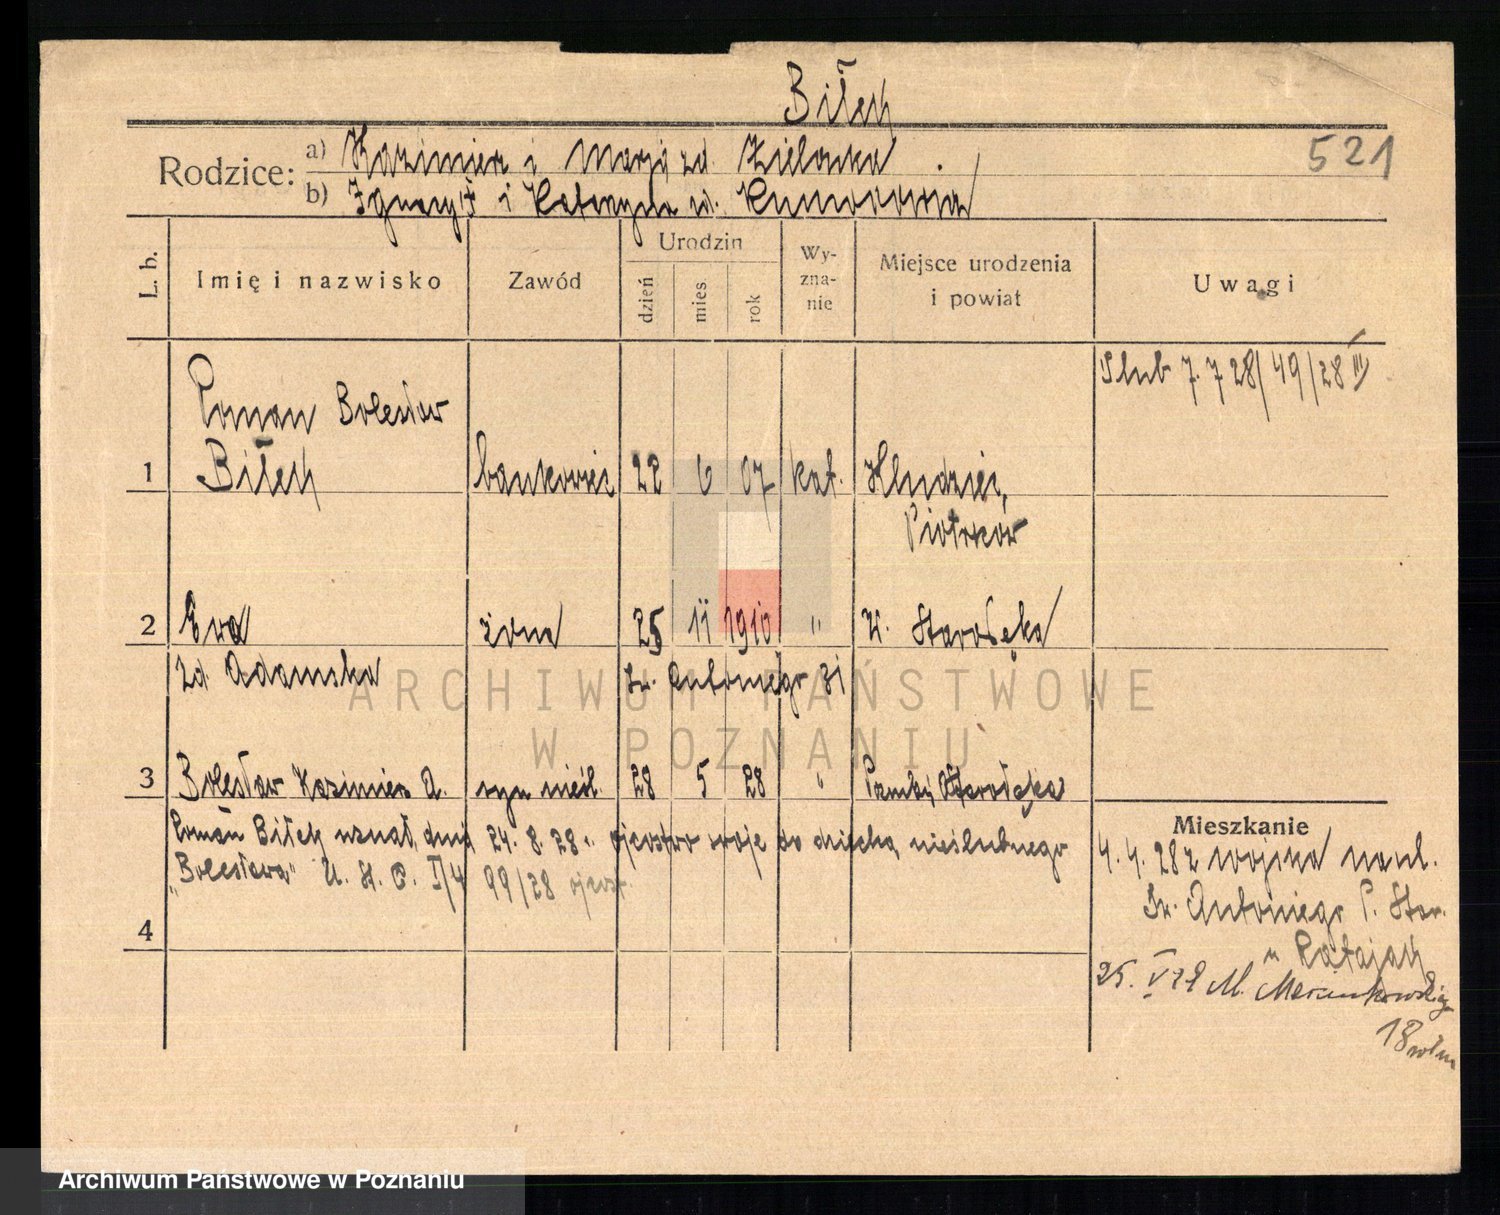 Biłek
521
Rodzice: a) Kazimierz i Marji zd. Zielonka
b) Ignacy i Katarzyna zd.
L. b.
Imię i nazwisko
Zawód
Urodzin
dzień
mies
rok
Wy-
zna-
nie
Miejsce urodzenia
i powiat
Uwagi
Ślub 7. 7 28/ 49/28 III
Roman Bolesław
1 Biłek bankowiec 22 6 07 kat.
Piotrków
2 Ewa żona 25 11 1910 " Starołęka
zd. Adamska Św. Antoniego 31
3 Bolesław Kazimierz A. syn nieśl. 28 5 28 " Starołęka
Roman Biłek uznał dnia 24. 8. 28 r. ojcostwo swoje do dziecka nieślubnego
"Bolesława" U. S. C. I/4 99/28 ojcost.
4
Mieszkanie
4. 4. 28 z
Św. Antoniego P. Star.
u Ratajach
25. V 28 M.
18
ARCHIWUM PAŃSTWOWE
W POZNANIU
Archiwum Państwowe w Poznaniu